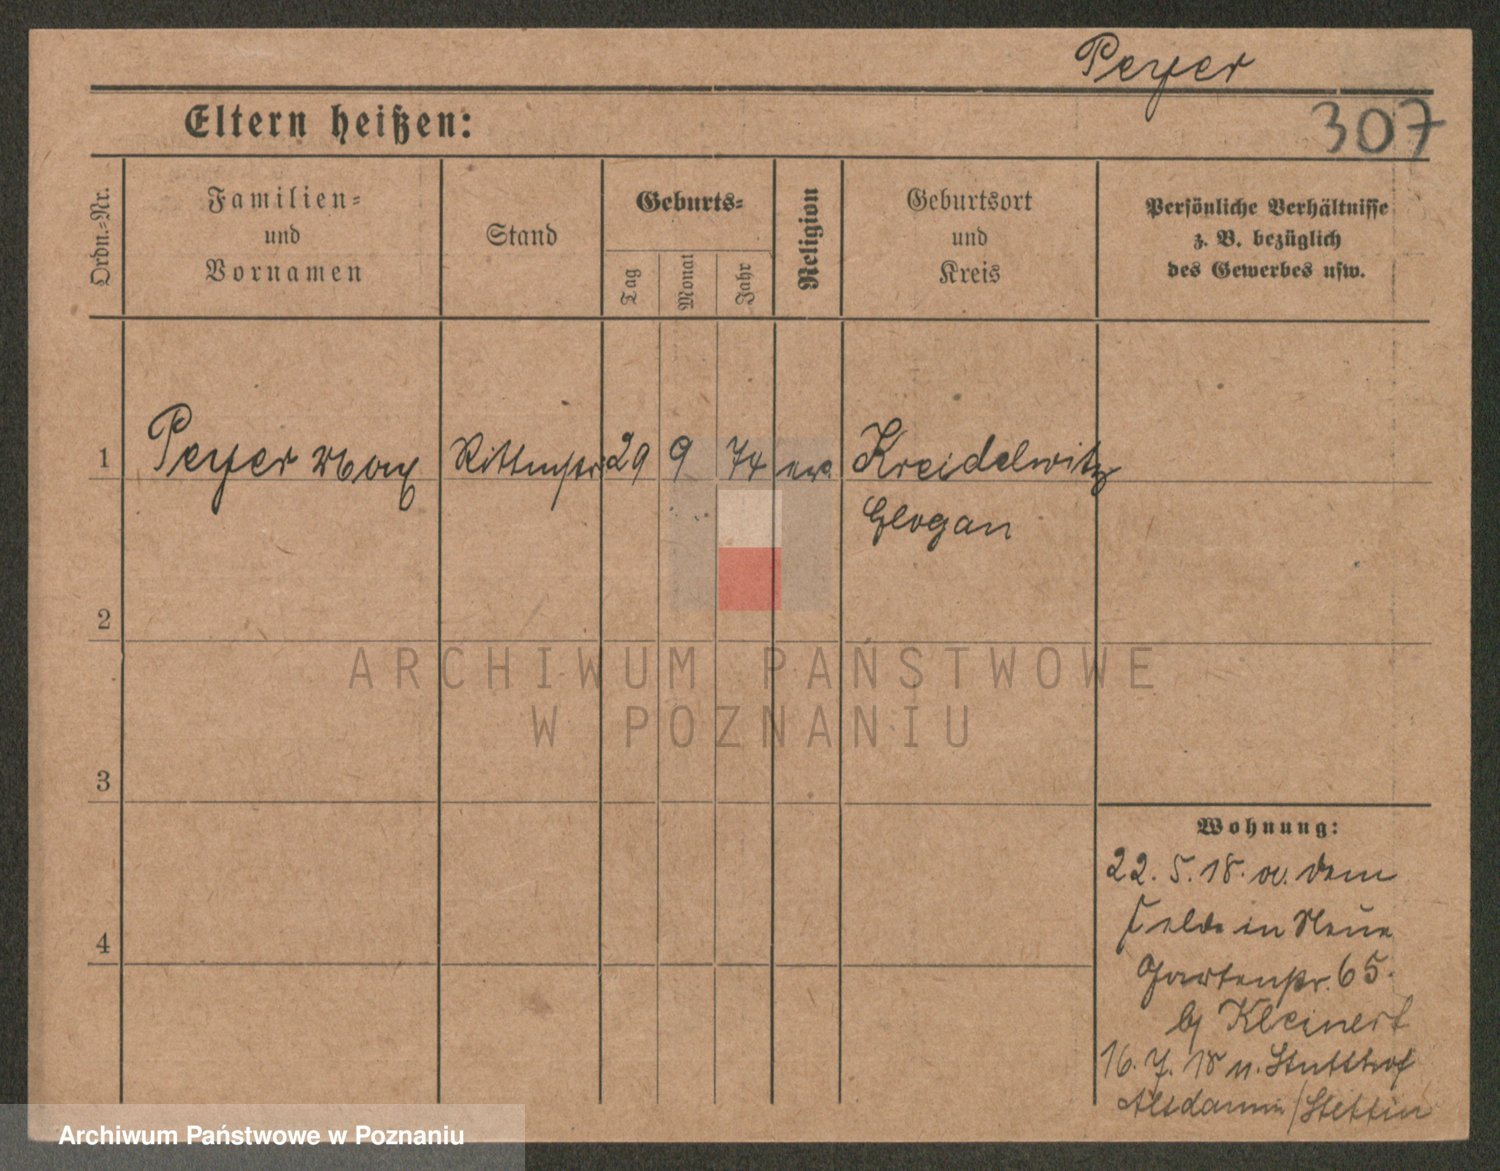 Peyer
307
Eltern heißen:
Ordn.-Nr.
Familien-
und
Vornamen
Stand
Geburts-
Tag
Monat
Jahr
Religion
Geburtsort
und
Kreis
Persönliche Verhältnisse
z. B. bezüglich
des Gewerbes usw.
1 Peyer Max Rittmstr 29 9 74 Kreidelwitz
Glogau
2
3
4
Wohnung:
22. 5. 18. dem
Felde in Neue
Gartenstr. 65.
b/ Kleinert
16. 7. 18 n. Stutthof
Altdamm/Stettin
ARCHIWUM PAŃSTWOWE
W POZNANIU
Archiwum Państwowe w Poznaniu